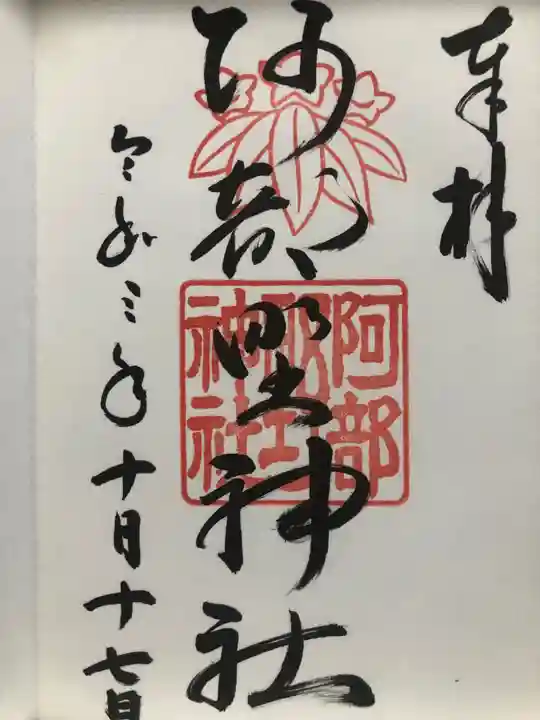 奉拝
阿部野神社
令和三年十月十七日
阿部
神社